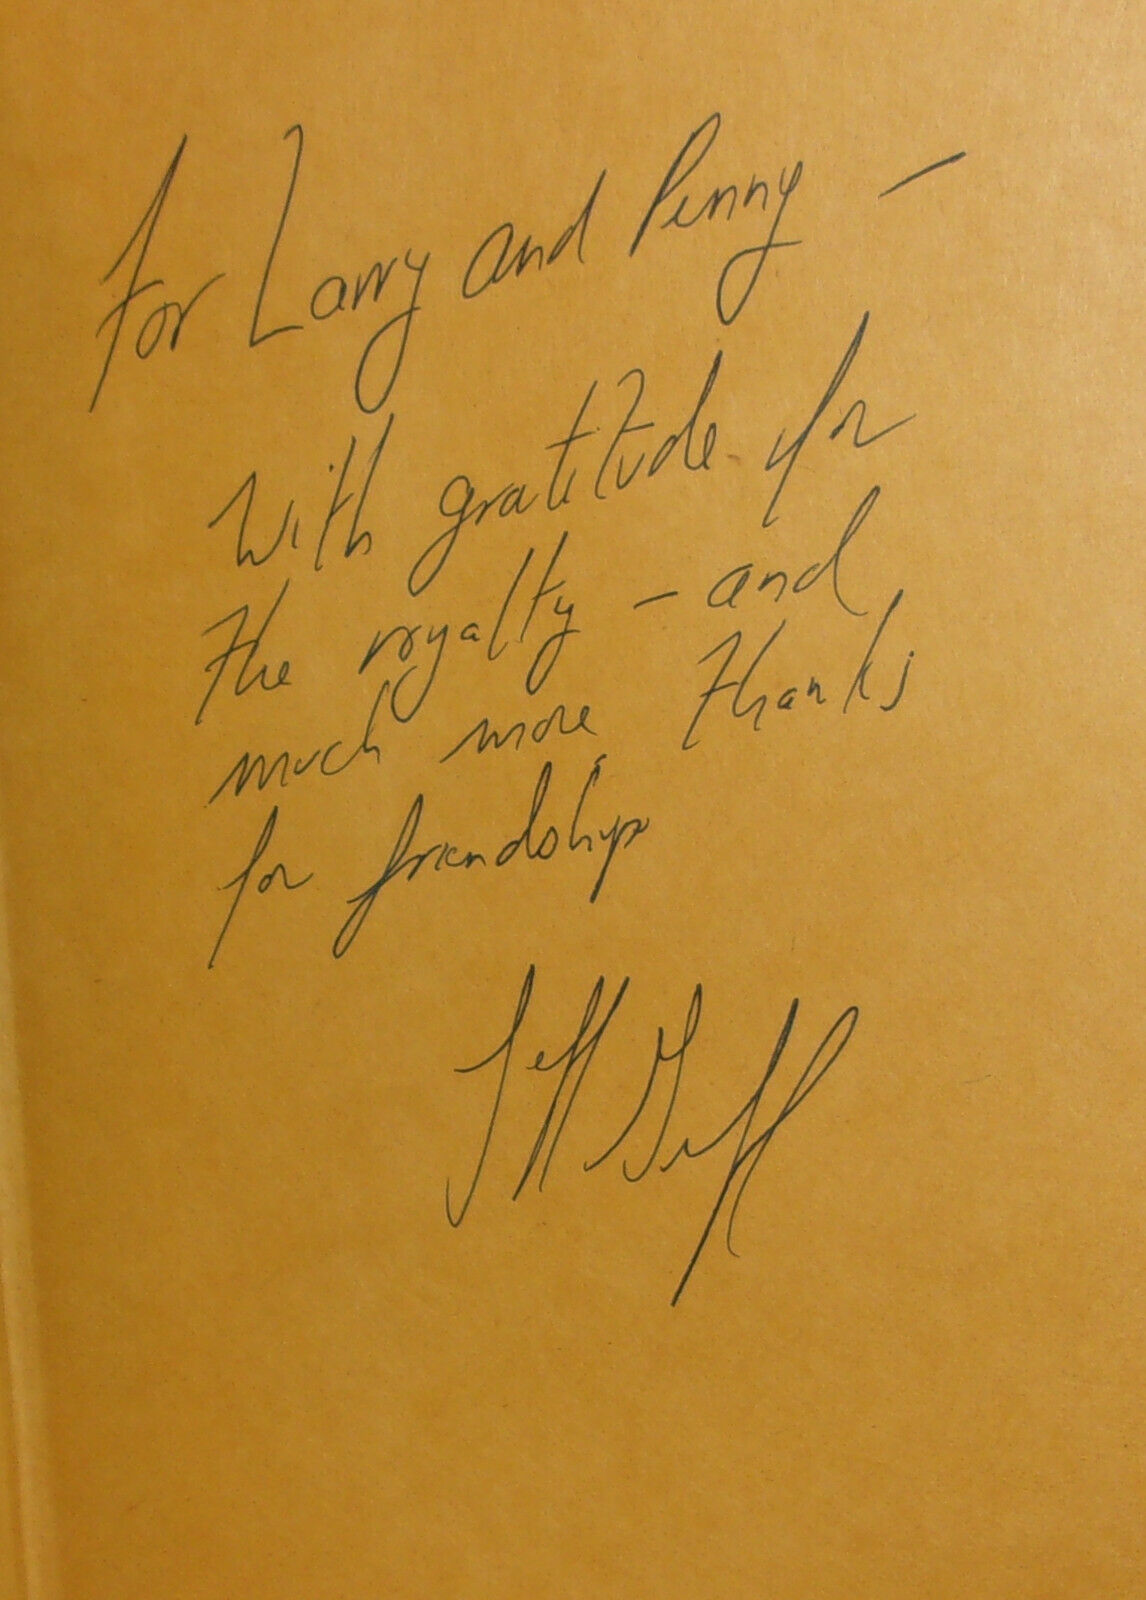 For Larry and Penny —
With gratitude for
the royalty - and
much more, thanks
for friendship
Jeff